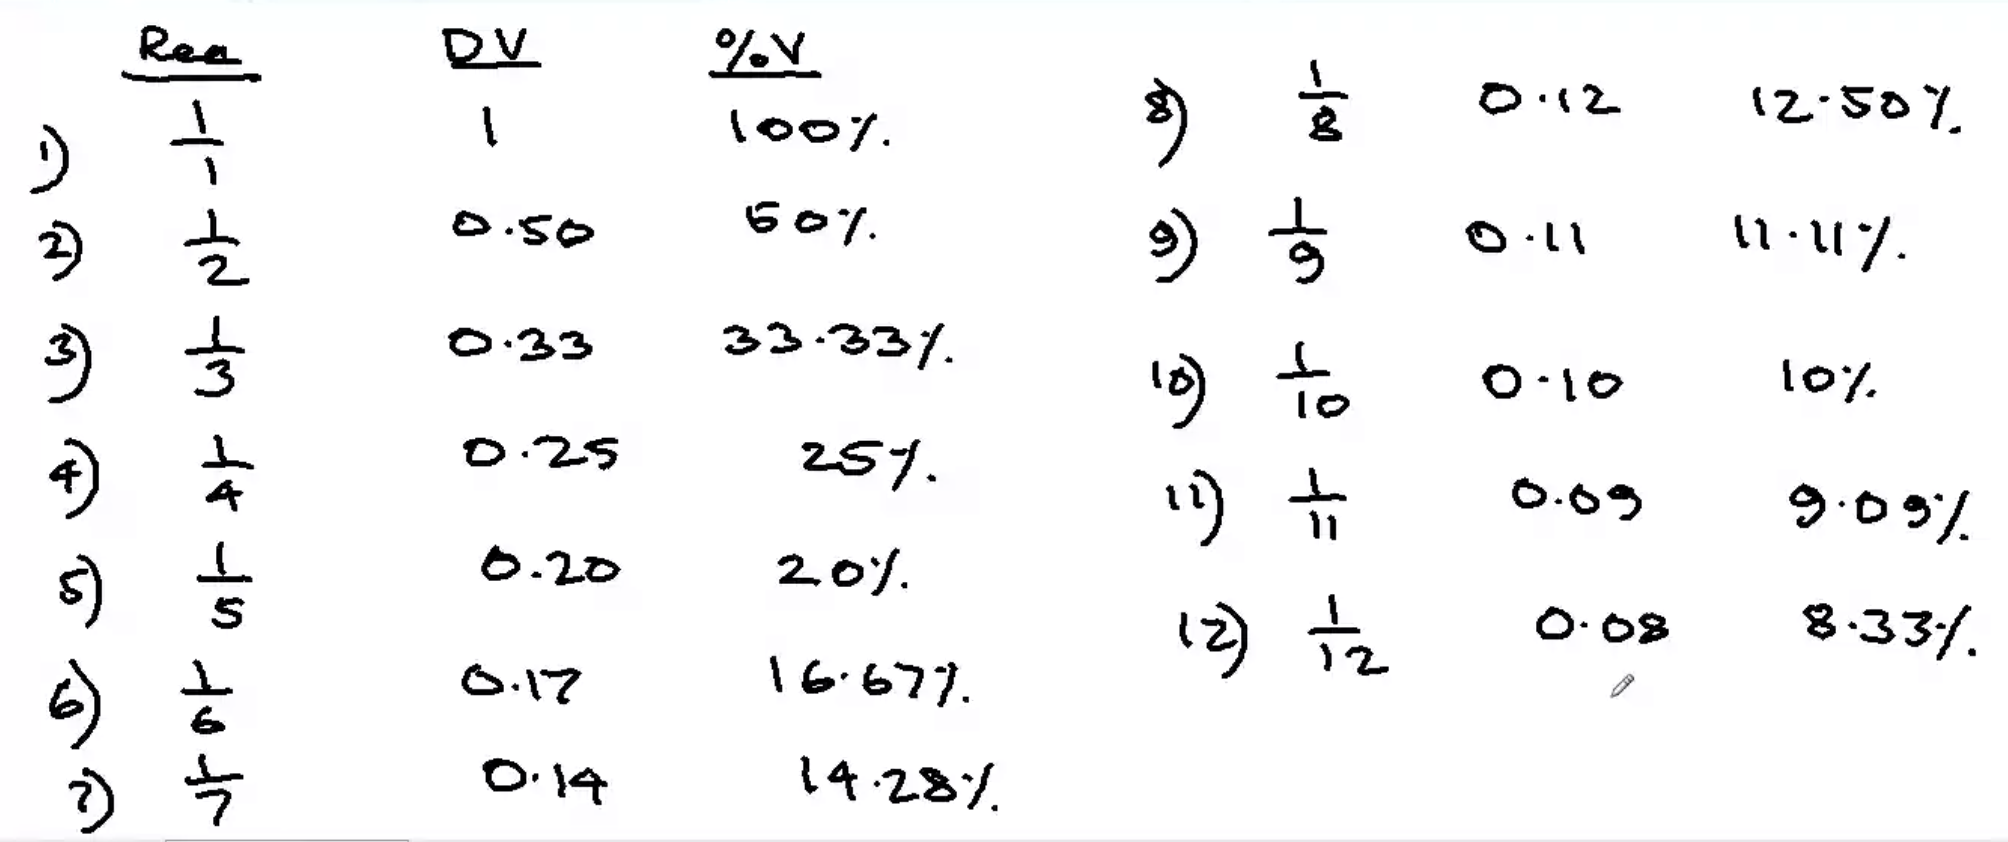 Rea DV %V
1) 1/1 1 100%.
2) 1/2 0.50 50%.
3) 1/3 0.33 33.33%.
4) 1/4 0.25 25%.
5) 1/5 0.20 20%.
6) 1/6 0.17 16.67%.
7) 1/7 0.14 14.28%.
8) 1/8 0.12 12.50%.
9) 1/9 0.11 11.11%.
10) 1/10 0.10 10%.
11) 1/11 0.09 9.09%.
12) 1/12 0.08 8.33%.